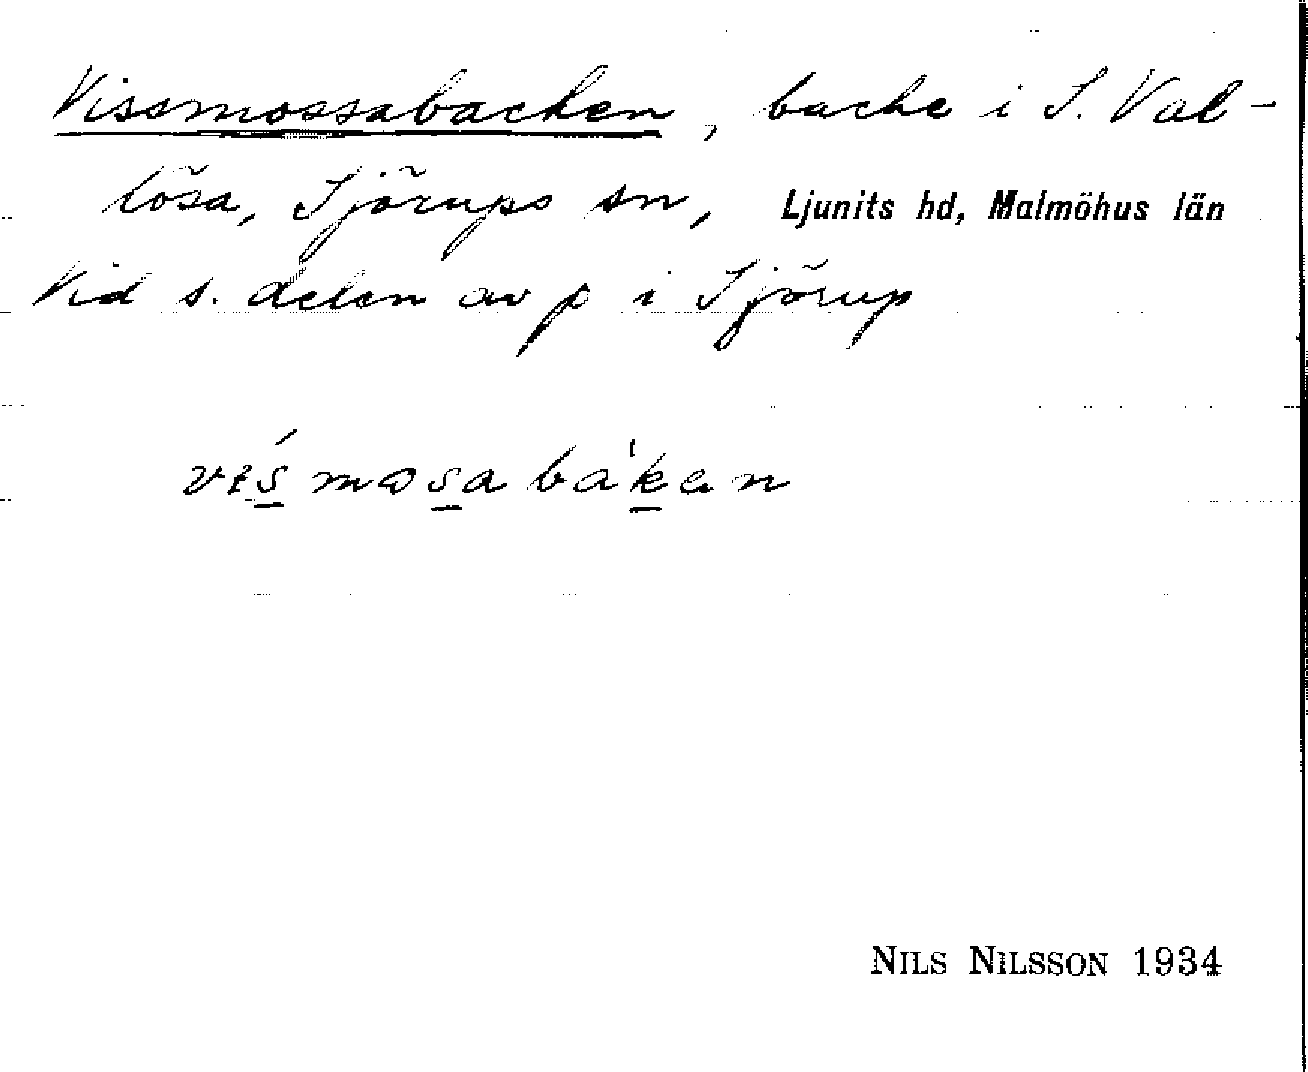 Vissmossabacken, backe i S. Val-
lösa, Sjörups sn, Ljunits hd, Malmöhus län
Vid s. delen av p i Sjörup
vɩśmosabàkan
NILS NILSSON 1934